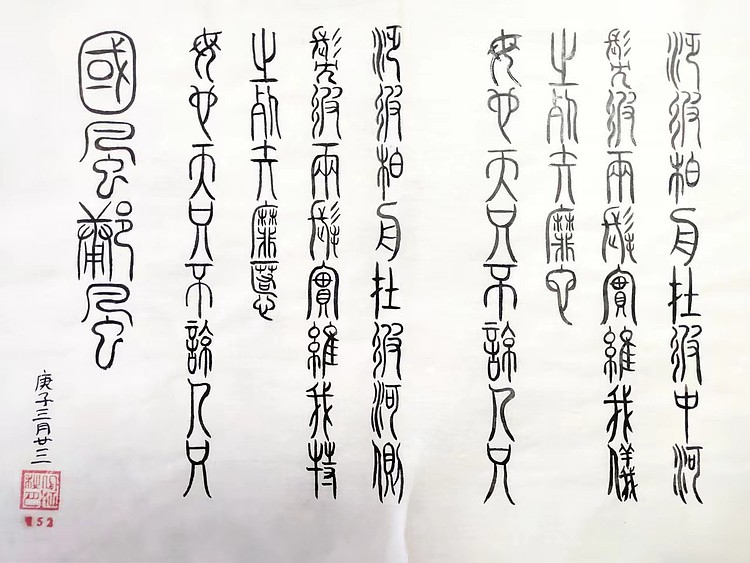 汎彼柏舟在彼中河
髧彼兩髦實維我儀
之死矢靡它
母也天只不諒人只
汎彼柏舟在彼河側
髧彼兩髦實維我特
之死矢靡慝
母也天只不諒人只
國風鄘風
庚子三月廿三
52